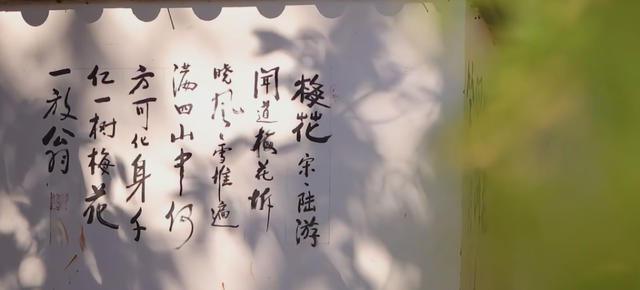 梅花 宋·陆游
闻道梅花坼
晓风雪堆遍
满四山中何
方可化身千
亿一树梅花
一放翁